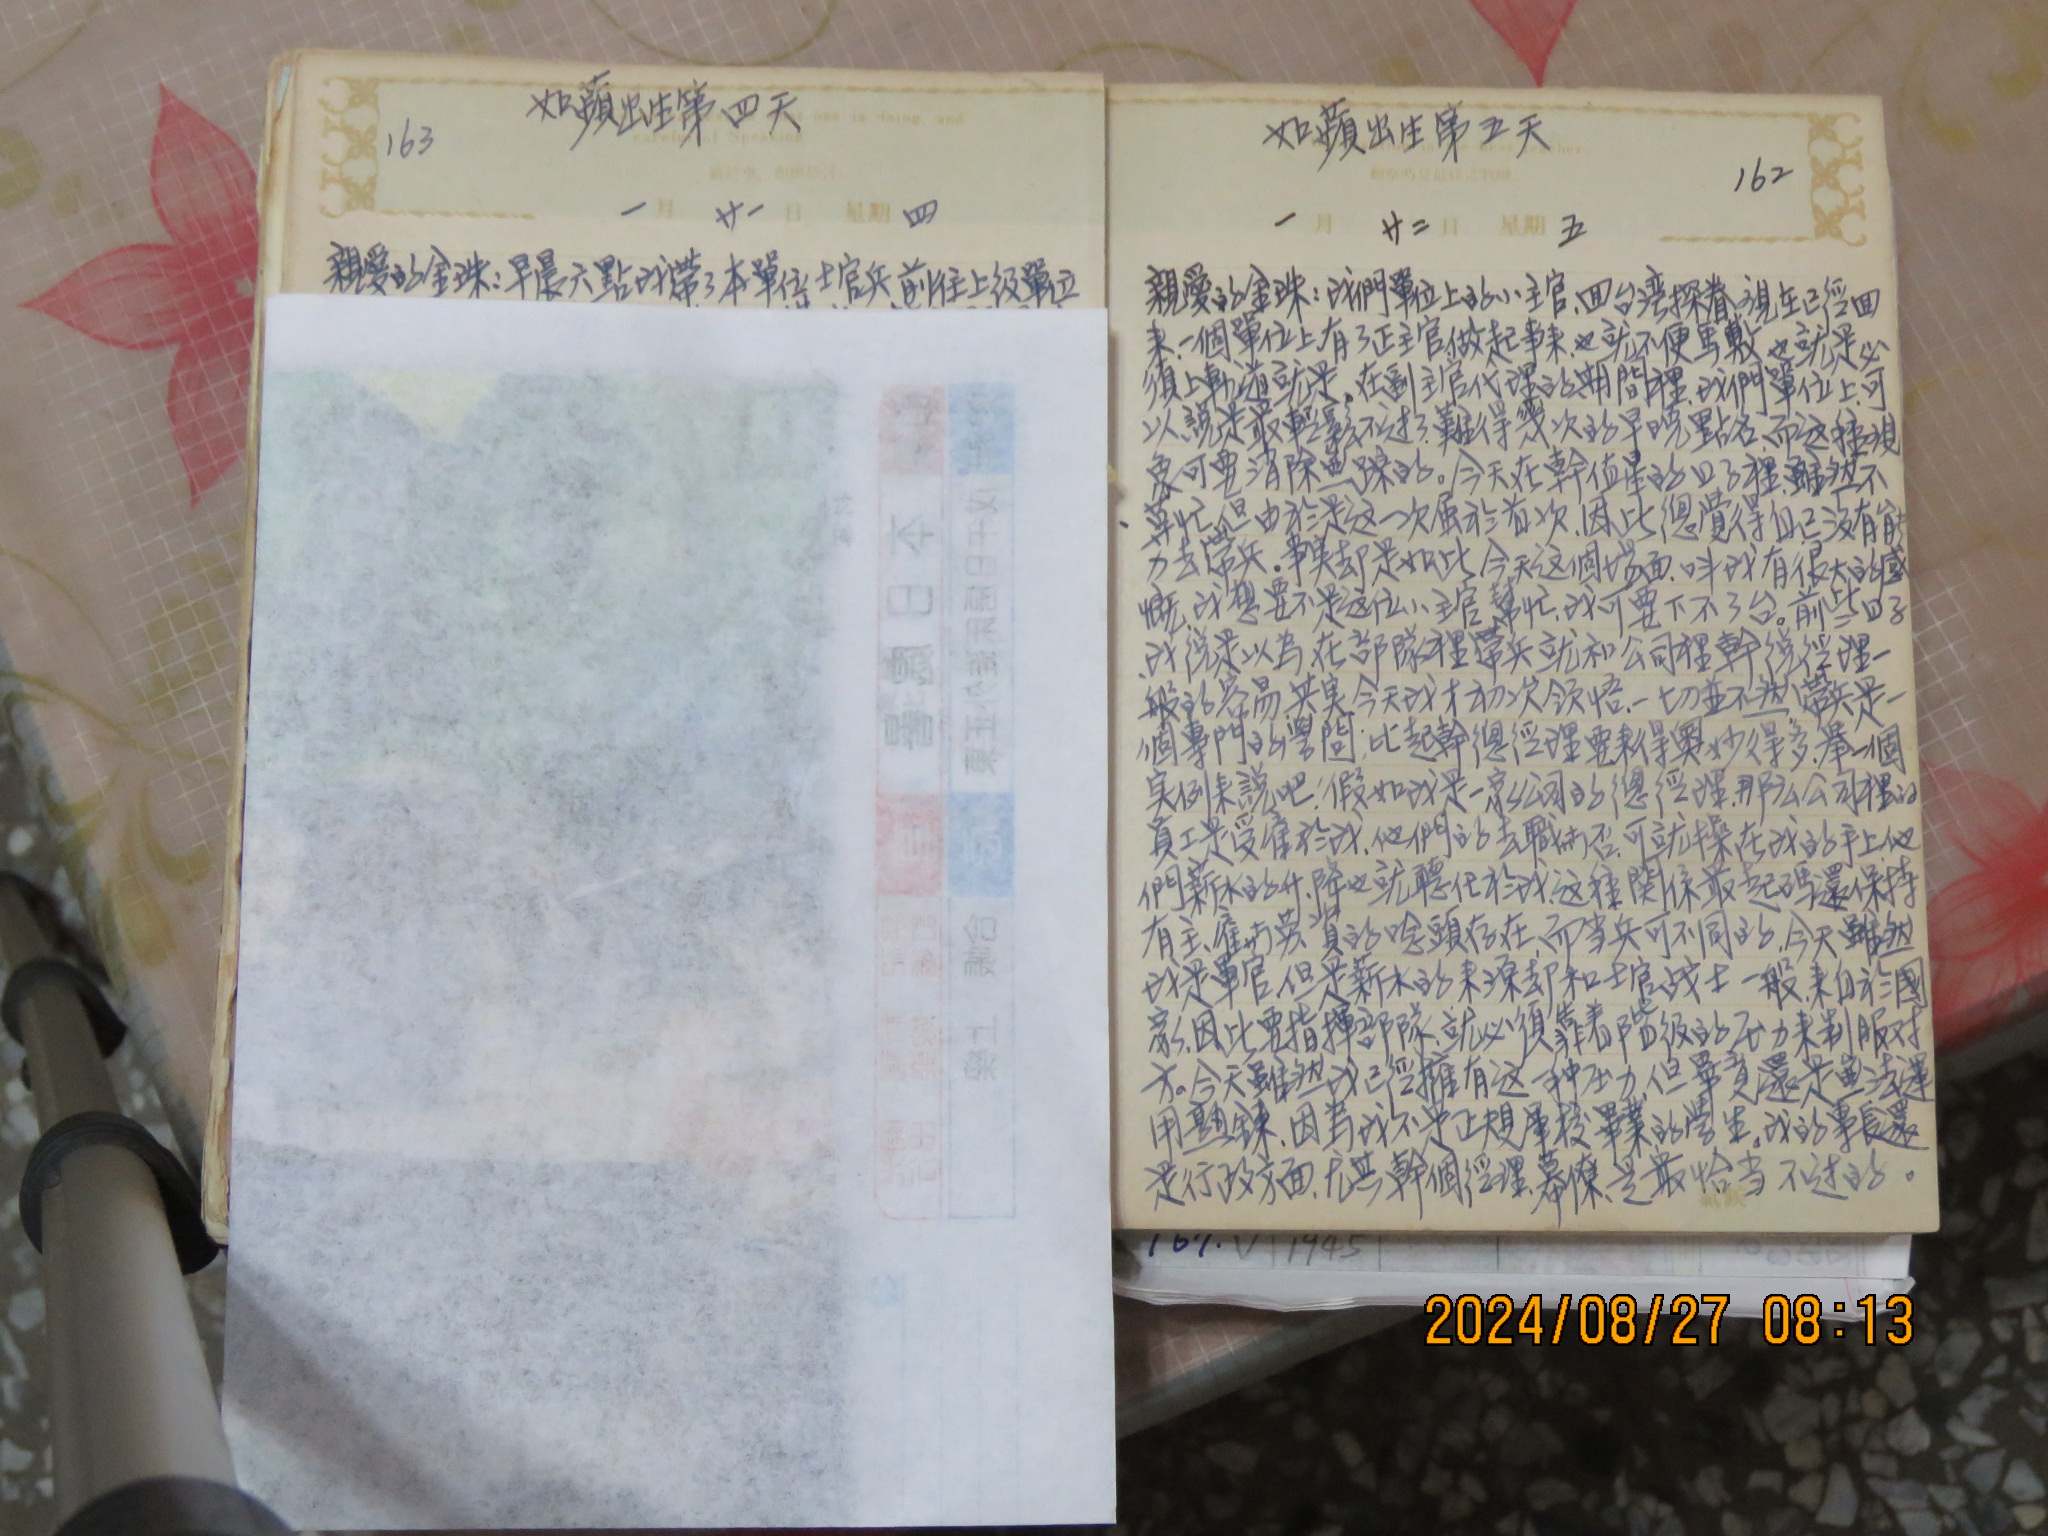 如蘋出生第四天
163
一月 廿一日 星期四
親愛的金珠：早晨六點我帶了本單位士官兵前往上級單位
如蘋出生第五天
162
一月 廿二日 星期五
親愛的金珠：我們單位上的小主官，回台灣探眷，現在已經回
來，一個單位上有了正主官做起事來，也就不便馬虎，也就是必
須上軌道就是。在副主官代理的期間裡，我們單位上，可
以說是最輕鬆不過了，難得幾次的早晚點名，而這種現
象可要消除無蹤的。今天在幹值星的日子裡，雖然不
算忙，但由於是這一次屬於首次，因此總覺得自己沒有能
力去帶兵。事実却是如此，今天這個場面，叫我有很大的感
慨，我想要不是這位小主官幫忙，我可要下不了台。前些日子
我總是以為，在部隊裡帶兵就和公司裡幹總經理一
般的容易，其実，今天我才初次領悟，一切並不然，帶兵是一
個專門的學問，比起幹總經理要來得奧妙得多，舉一個
実例來說吧！假如我是一家公司的總經理，那么公司裡的
員工是受雇於我，他們的去職與否，可就操在我的手上，他
們薪水的升、降也就聽任於我，這種關係最起碼還保持
有主、雇與勞、資的唸頭存在，而当兵可不同的，今天雖然
我是軍官，但是薪水的來源却和士官、战士一般，來自於國
家，因此要指揮部隊，就必須靠着階級的压力來制服对
方。今天雖然我已經擁有這一种压力，但畢竟還是無法運
用熟練，因為我不是正規軍校畢業的學生。我的專長還
是行政方面，尤其幹個經理、幕僚，是最恰当不过的。
167. V 1945
2024/08/27 08:13